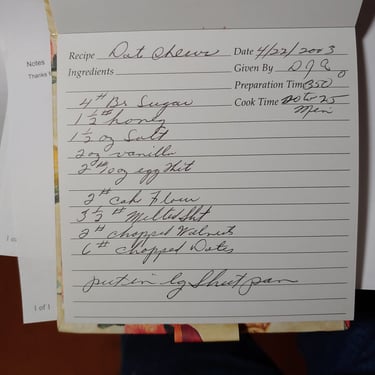 Notes
Thanks
Recipe Dat Chews Date 4/22/2003
Ingredients Given By DJG
Preparation Time 350°
4# Br Sugar Cook Time 20 to 25
1 1/2# honey Min
1 1/2 oz Salt
2oz vanilla
2# 10oz egg
2# Cake Flour
3 1/2# Melted Sht
2# chopped Walnuts
6# chopped Dates
put in lg Sheet pan
1 of 1